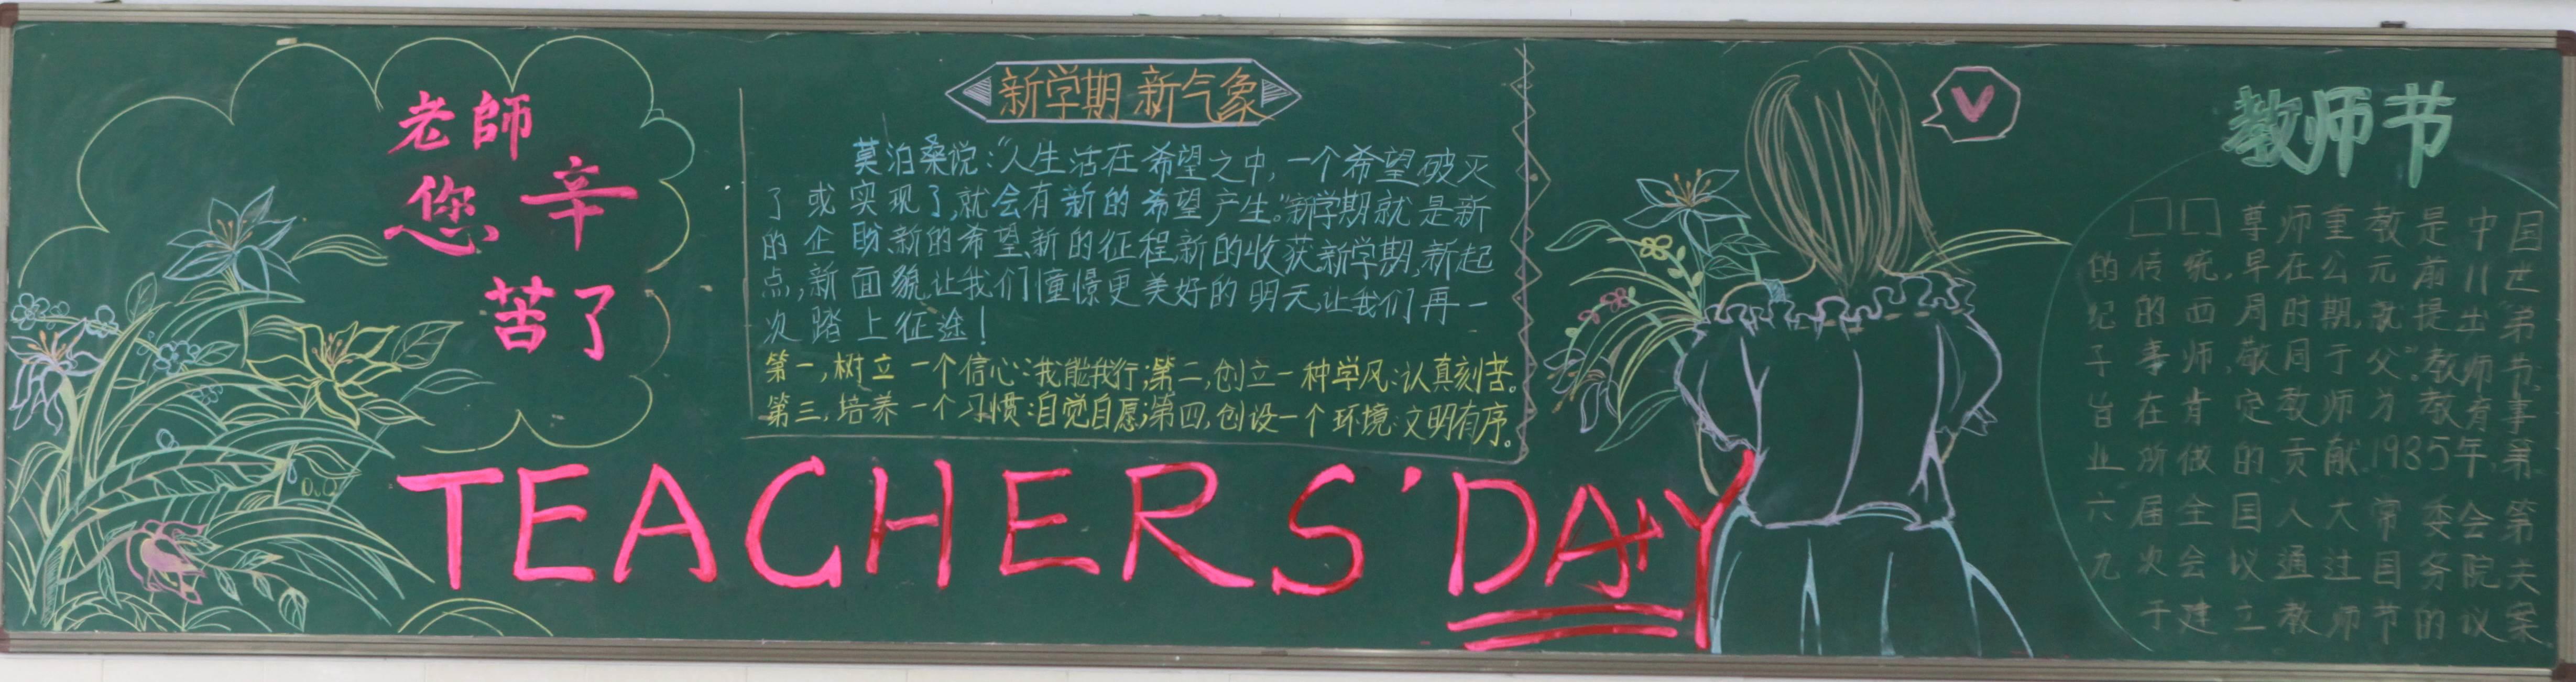 老師
您辛
苦了
新学期 新气象
莫泊桑说：“人生活在希望之中，一个希望破灭
了或实现了，就会有新的希望产生。”新学期就是新
的企盼、新的希望、新的征程、新的收获。新学期，新起
点，新面貌让我们憧憬更美好的明天，让我们再一
次踏上征途！
第一，树立一个信心：我能我行；第二，创立一种学风：认真刻苦。
第三，培养一个习惯：自觉自愿；第四，创设一个环境：文明有序。
TEACHERS' DAY
教师节
□□尊师重教是中国
的传统，早在公元前11世
纪的西周时期，就提出“弟
子事师，敬同于父”。教师节，
旨在肯定教师为教育事
业所做的贡献。1985年，第
六届全国人大常委会第
九次会议通过国务院关
于建立教师节的议案